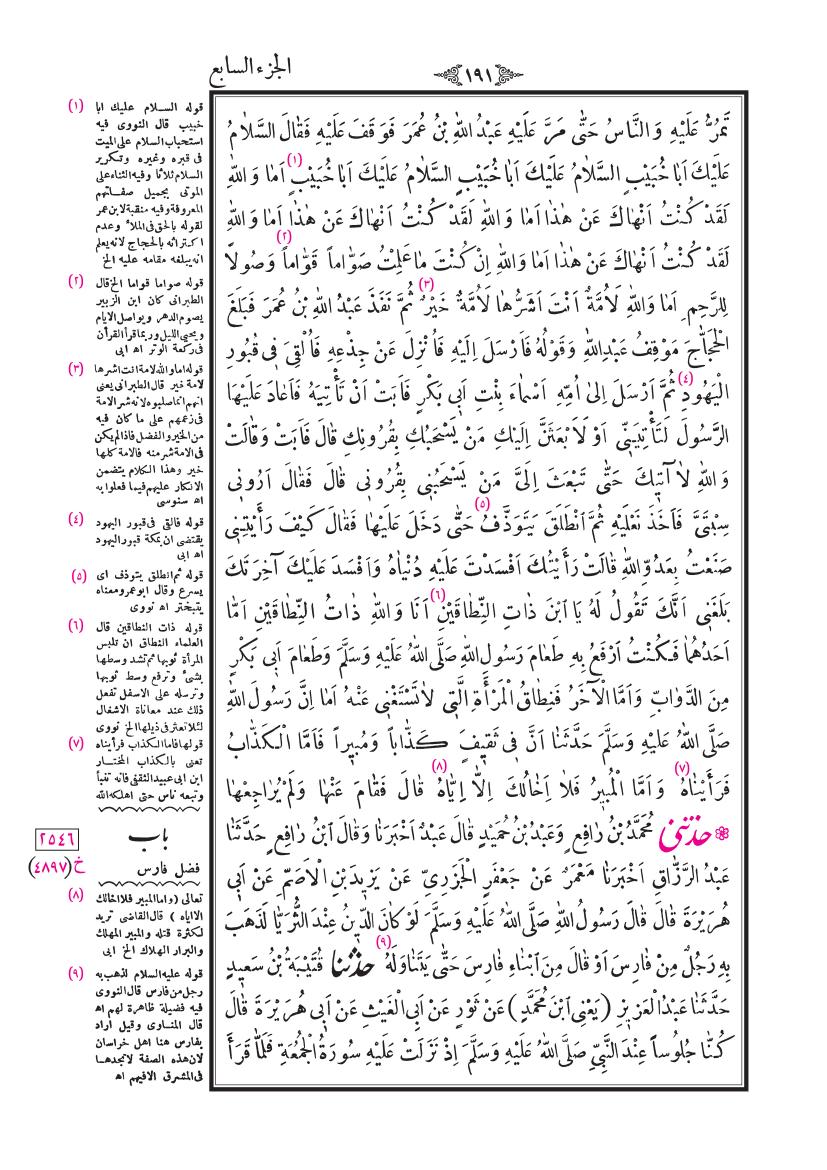 ١٩١
الجزء السابع
تَمُرُّ عَلَيْهِ وَالنَّاسُ حَتّٰى مَرَّ عَلَيْهِ عَبْدُ اللّٰهِ بْنُ عُمَرَ فَوَقَفَ عَلَيْهِ فَقَالَ السَّلَامُ
عَلَيْكَ اَبَا خُبَيْبٍ السَّلَامُ عَلَيْكَ اَبَا خُبَيْبٍ السَّلَامُ عَلَيْكَ اَبَا خُبَيْبٍ (١) اَمَا وَاللّٰهِ
لَقَدْ كُنْتُ اَنْهَاكَ عَنْ هٰذَا اَمَا وَاللّٰهِ لَقَدْ كُنْتُ اَنْهَاكَ عَنْ هٰذَا اَمَا وَاللّٰهِ
لَقَدْ كُنْتُ اَنْهَاكَ عَنْ هٰذَا اَمَا وَاللّٰهِ اِنْ كُنْتَ مَا عَلِمْتُ صَوَّاماً قَوَّاماً (٢) وَصُولاً
لِلرَّحِمِ اَمَا وَاللّٰهِ لَاُمَّةٌ اَنْتَ اَشَرُّهَا لَاُمَّةٌ خَيْرٌ (٣) ثُمَّ نَفَذَ عَبْدُ اللّٰهِ بْنُ عُمَرَ فَبَلَغَ
الْحَجَّاجَ مَوْقِفُ عَبْدِاللّٰهِ وَقَوْلُهُ فَاَرْسَلَ اِلَيْهِ فَاُنْزِلَ عَنْ جِذْعِهِ فَاُلْقِىَ فِى قُبُورِ
الْيَهُودِ (٤) ثُمَّ اَرْسَلَ اِلٰى اُمِّهِ اَسْمَاءَ بِنْتِ اَبِى بَكْرٍ فَاَبَتْ اَنْ تَأْتِيَهُ فَاَعَادَ عَلَيْهَا
الرَّسُولَ لَتَأْتِيَنِّى اَوْ لَاَبْعَثَنَّ اِلَيْكِ مَنْ يَسْحَبُكِ بِقُرُونِكِ قَالَ فَاَبَتْ وَقَالَتْ
وَاللّٰهِ لَا آتِيكَ حَتّٰى تَبْعَثَ اِلَىَّ مَنْ يَسْحَبُنِى بِقُرُونِى قَالَ فَقَالَ اَرُونِى
سِبْتَىَّ فَاَخَذَ نَعْلَيْهِ ثُمَّ انْطَلَقَ يَتَوَذَّفُ (٥) حَتّٰى دَخَلَ عَلَيْهَا فَقَالَ كَيْفَ رَأَيْتِنِى
صَنَعْتُ بِعَدُوِّ اللّٰهِ قَالَتْ رَأَيْتُكَ اَفْسَدْتَ عَلَيْهِ دُنْيَاهُ وَاَفْسَدَ عَلَيْكَ آخِرَتَكَ
بَلَغَنِى اَنَّكَ تَقُولُ لَهُ يَا ابْنَ ذَاتِ النِّطَاقَيْنِ (٦) اَنَا وَاللّٰهِ ذَاتُ النِّطَاقَيْنِ اَمَّا
اَحَدُهُمَا فَكُنْتُ اَرْفَعُ بِهِ طَعَامَ رَسُولِ اللّٰهِ صَلَّى اللّٰهُ عَلَيْهِ وَسَلَّمَ وَطَعَامَ اَبِى بَكْرٍ
مِنَ الدَّوَابِّ وَاَمَّا الْآخَرُ فَنِطَاقُ الْمَرْأَةِ الَّتِى لَا تَسْتَغْنِى عَنْهُ اَمَا اِنَّ رَسُولَ اللّٰهِ
صَلَّى اللّٰهُ عَلَيْهِ وَسَلَّمَ حَدَّثَنَا اَنَّ فِى ثَقِيفٍ كَذَّاباً وَمُبِيراً فَاَمَّا الْكَذَّابُ
فَرَأَيْنَاهُ (٧) وَاَمَّا الْمُبِيرُ فَلَا اِخَالُكَ اِلَّا اِيَّاهُ (٨) قَالَ فَقَامَ عَنْهَا وَلَمْ يُرَاجِعْهَا
حَدَّثَنِى مُحَمَّدُ بْنُ رَافِعٍ وَعَبْدُ بْنُ حُمَيْدٍ قَالَ عَبْدٌ اَخْبَرَنَا وَقَالَ ابْنُ رَافِعٍ حَدَّثَنَا
عَبْدُ الرَّزَّاقِ اَخْبَرَنَا مَعْمَرٌ عَنْ جَعْفَرٍ الْجَزَرِىِّ عَنْ يَزِيدَ بْنِ الْاَصَمِّ عَنْ اَبِى
هُرَيْرَةَ قَالَ قَالَ رَسُولُ اللّٰهِ صَلَّى اللّٰهُ عَلَيْهِ وَسَلَّمَ لَوْ كَانَ الدِّينُ عِنْدَ الثُّرَيَّا لَذَهَبَ
بِهِ رَجُلٌ مِنْ فَارِسَ اَوْ قَالَ مِنْ اَبْنَاءِ فَارِسَ حَتّٰى يَتَنَاوَلَهُ (٩) حَدَّثَنَا قُتَيْبَةُ بْنُ سَعِيدٍ
حَدَّثَنَا عَبْدُ الْعَزِيزِ (يَعْنِى ابْنَ مُحَمَّدٍ) عَنْ ثَوْرٍ عَنْ اَبِى الْغَيْثِ عَنْ اَبِى هُرَيْرَةَ قَالَ
كُنَّا جُلُوساً عِنْدَ النَّبِىِّ صَلَّى اللّٰهُ عَلَيْهِ وَسَلَّمَ اِذْ نَزَلَتْ عَلَيْهِ سُورَةُ الْجُمُعَةِ فَلَمَّا قَرَأَ
(١) قوله السلام عليك ابا
خبيب قال النووى فيه
استحباب السلام على الميت
فى قبره وغيره وتكرير
السلام ثلاثا وفيه الثناء على
الموتى بجميل صفاتهم
المعروفة وفيه منقبة لابن عمر
لقوله بالحق فى الملأ وعدم
اكتراثه بالحجاج لانه يعلم
انه يبلغه مقامه عليه الخ
(٢) قوله صواما قواما الخ قال
الطبرانى كان ابن الزبير
يصوم الدهر ويواصل الايام
ويحيى الليل وربما قرأ القرآن
فى ركعة الوتر اه ابى
(٣) قوله اما والله لامة انت اشرها
لامة خير قال الطبرانى يعنى
انهم انما صلبوه لانه شر الامة
فى زعمهم على ما كان فيه
من الخير والفضل فاذا لم يكن
فى الامة شر منه فالامة كلها
خير وهذا الكلام يتضمن
الانكار عليهم فيما فعلوا به
اه سنوسى
(٤) قوله فالقى فى قبور اليهود
يقتضى ان بمكة قبور اليهود
اه ابى
(٥) قوله ثم انطلق يتوذف اى
يسرع وقال ابو عمر ومعناه
يتبختر اه نووى
(٦) قوله ذات النطاقين قال
العلماء النطاق ان تلبس
المرأة ثوبها ثم تشد وسطها
بشئ وترفع وسط ثوبها
وترسله على الاسفل تفعل
ذلك عند معاناة الاشغال
لئلا تعثر فى ذيلها الخ نووى
(٧) قولها فاما الكذاب فرأيناه
تعنى بالكذاب المختار
ابن ابى عبيد الثقفى فانه تنبأ
وتبعه ناس حتى اهلكه الله
باب
٢٥٤٦
فضل فارس
خ (٤٨٩٧)
(٨) تعالى (واما المبير فلا اخالك
الا اياه) قال القاضى تريد
لكثرة قتله والمبير المهلك
والبرار الهلاك الخ ابى
(٩) قوله عليه السلام لذهب به
رجل من فارس قال النووى
فيه فضيلة ظاهرة لهم اه
قال المناوى وقيل اراد
بفارس هنا اهل خراسان
لان هذه الصفة لا تجدها
فى المشرق الا فيهم اه